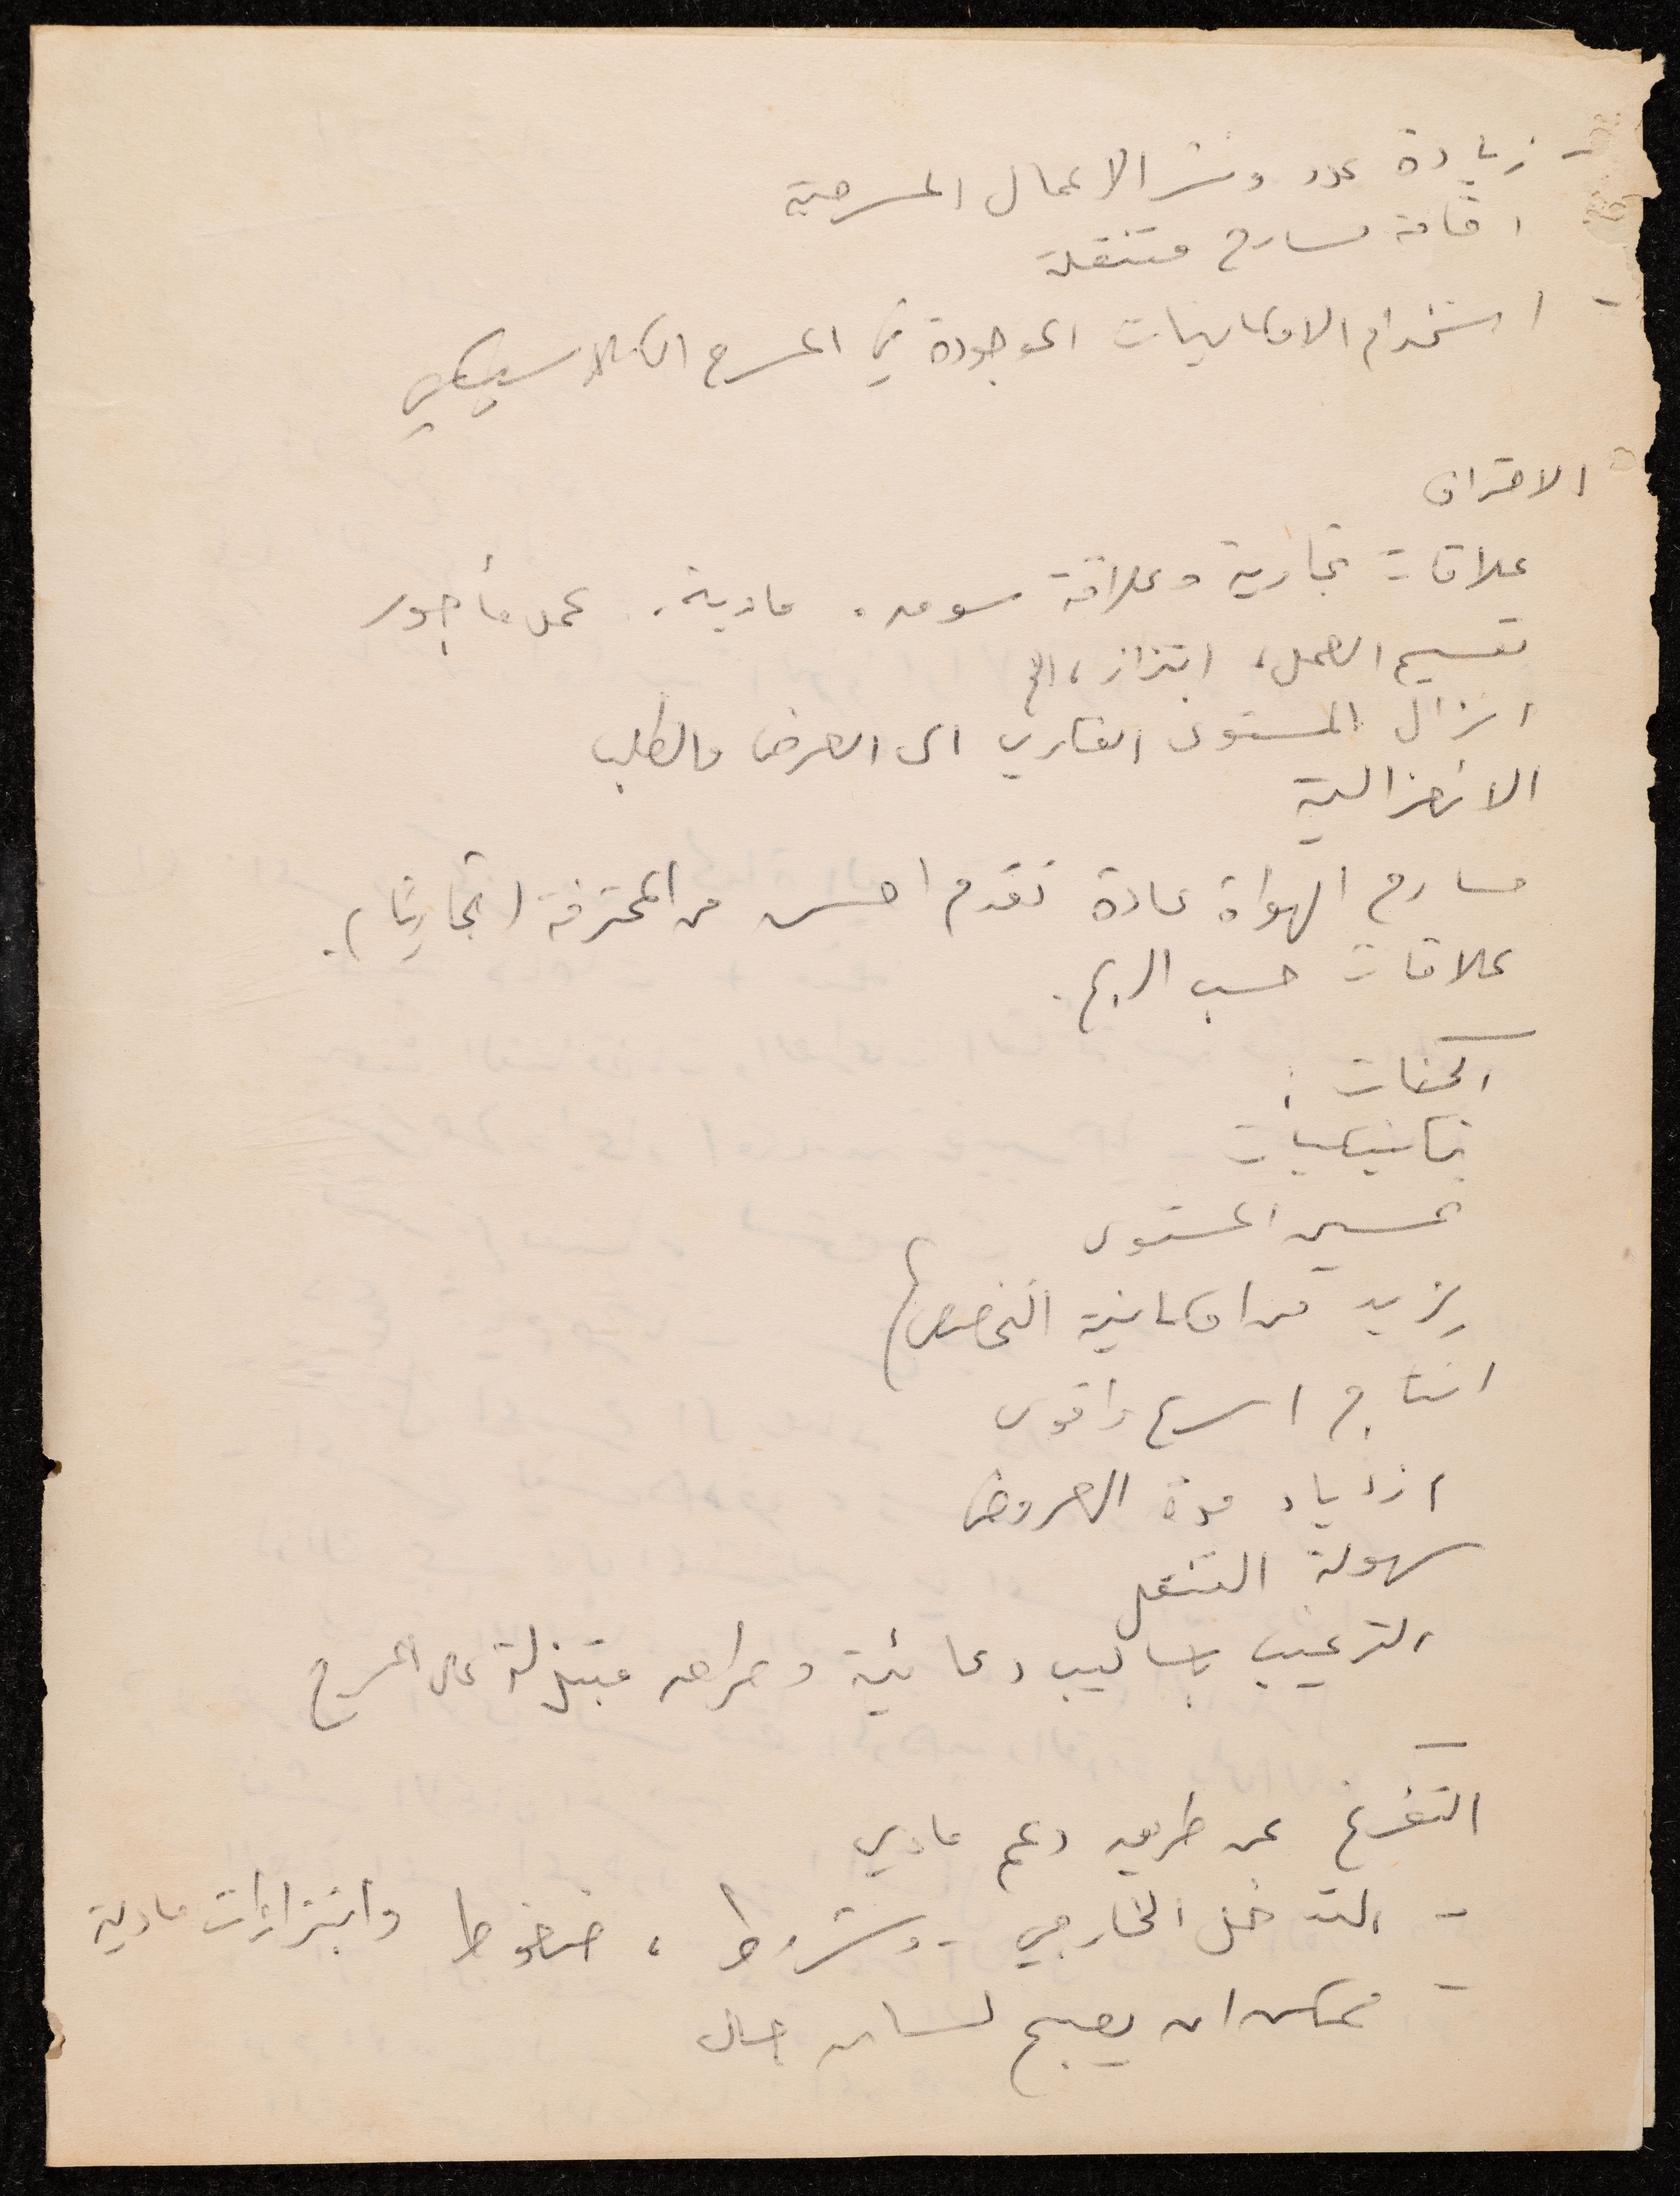 - زيادة عدد ونشر الاعمال المسرحية
اقامة مسارح متنقلة
- استخدام الامكانيات الموجودة في المسرح الكلاسيكي
الاحتراف
علاقات تجارية وعلاقة سوق. مادية. عمل مأجور
تقسيم العمل، ابتزاز، الخ
انزال المستوى الفكري الى العرض والطلب
الانعزالية
مسارح الهواة عادة تقدم احسن من المحترفة (تجاريا).
علاقات حسب الربح.
الحسنات:
تكنيكيات
تحسين المستوى
يزيد من امكانية التخصص
انتاج اسرع واقوى
ازدياد مدة العروض
سهولة التنقل
الترغيب باساليب دعائية و مبتذلة على المسرح
التفرغ عن طريق دعم مادي
- التدخل الخارجي - وشروط، ضغوط وابتزازات مادية
- ممكن ان يصبح لسان حال